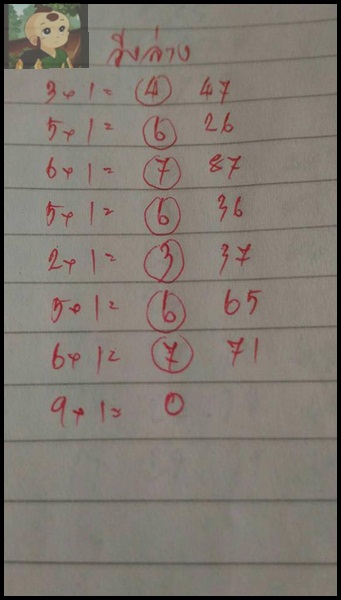 วิ่งล่าง
3+1= 4 47
5+1= 6 26
6+1= 7 87
5+1= 6 36
2+1= 3 37
5+1= 6 65
6+1= 7 71
9+1= 0